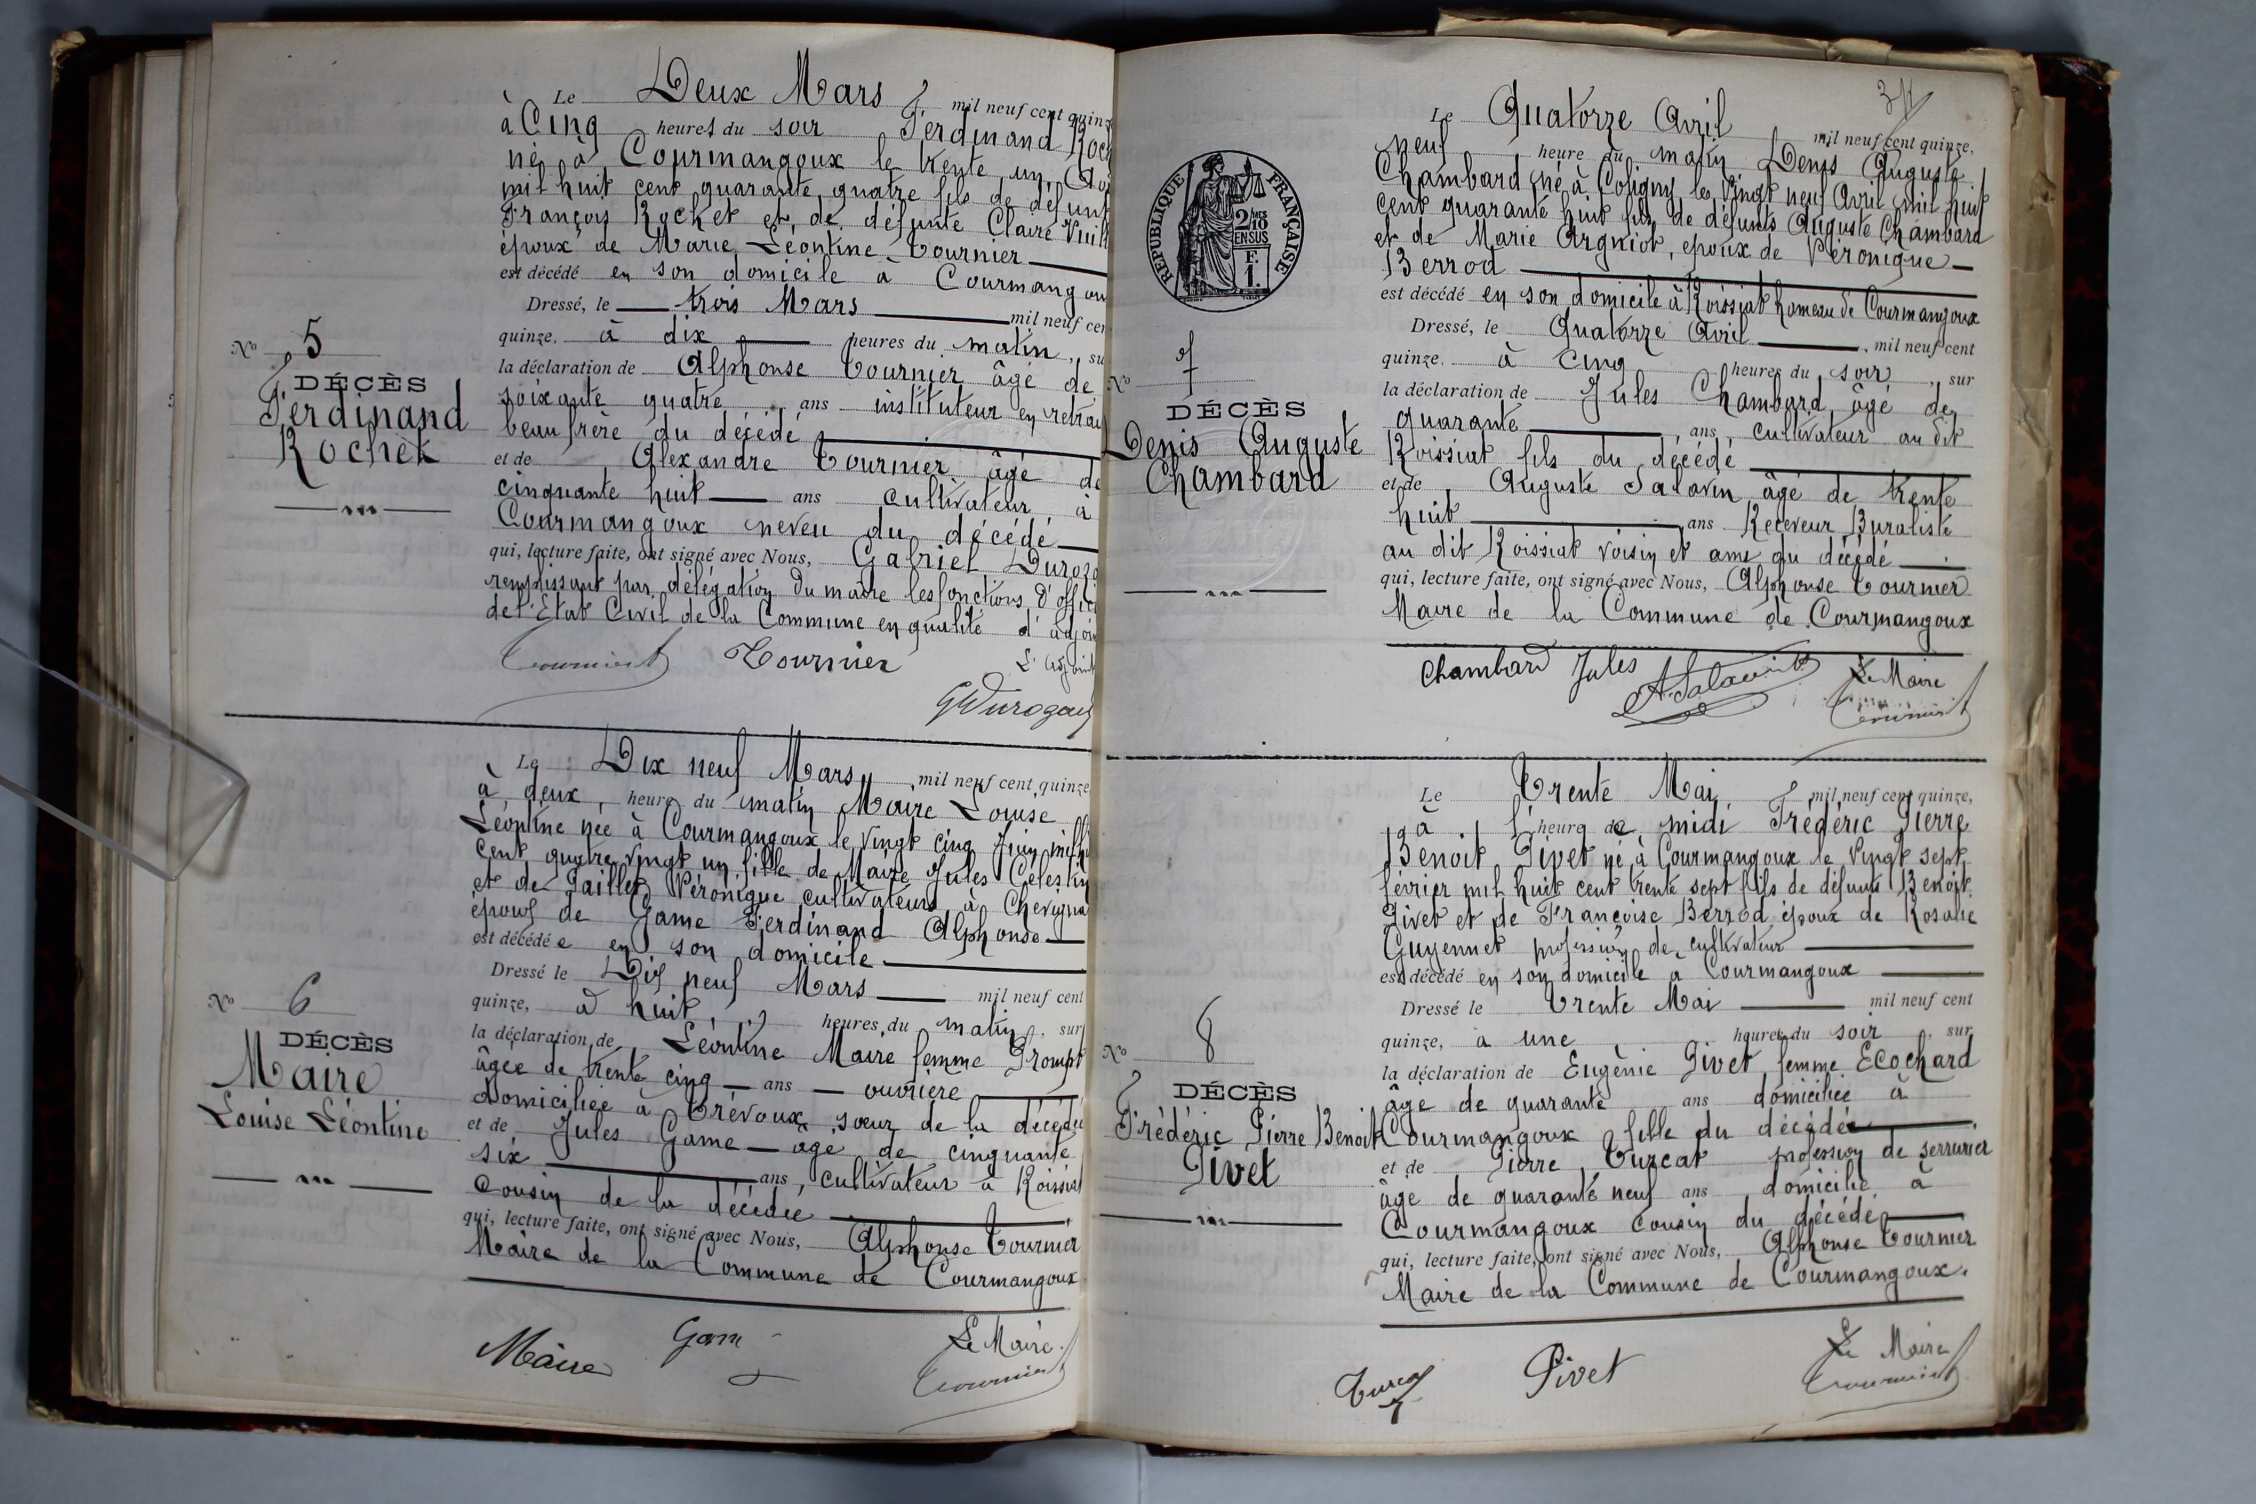 Le Deux Mars mil neuf cent quinze
à Cinq heures du soir Ferdinand Roch
né à Courmangoux le trente un
mil huit cent quarante quatre fils de défunt
François Rochet et de défunte Claire Vuill
époux de Marie Léontine Tournier
est décédé en son domicile à Courmangou
Dressé, le trois Mars mil neuf cen
quinze. à dix heures du matin, su
la déclaration de Alphonse Tournier âgé de
soixante quatre ans instituteur en retrai
beau frère du décédé
et de Alexandre Tournier âgé de
cinquante huit ans cultivateur à
Courmangoux neveu du décédé
qui, lecture faite, ont signé avec Nous, Gabriel Duroz
remplissant par délégation du maire les fonctions d'offici
de l'État Civil de la Commune en qualité d'adjoin
Tournier Tournier L'adjoint
GDurozay
No 5
DÉCÈS
Ferdinand
Rochet
Le Dix neuf Mars mil neuf cent quinze
à deux heure du matin Maire Louise
Léontine née à Courmangoux le vingt cinq Juin mil h
cent quatre vingt un fille de Maire Jules Célestin
et de Paillet Véronique cultivateurs à Chevigna
épouse de Game Ferdinand Alphonse
est décédée en son domicile
Dressé le Dix neuf Mars mil neuf cent
quinze, à huit heures du matin, sur
la déclaration de Léontine Maire femme Prompt
âgée de trente cinq ans ouvrière
domiciliée à Trévoux sœur de la décédée
et de Jules Game âgé de cinquante
six ans, cultivateur à Roissiat
cousin de la décédée
qui, lecture faite, ont signé avec Nous, Alphonse Tournier
Maire de la Commune de Courmangoux
Maire Gam Le Maire
Tournier
No 6
DÉCÈS
Maire
Louise Léontine
Le Quatorze Avril mil neuf cent quinze,
neuf heure du matin Denis Auguste
Chambard né à Coligny le vingt neuf Avril mil huit
cent quarante huit fils de défunts Auguste Chambard
et de Marie Argniot, époux de Véronique
Berrod
est décédé en son domicile à Roissiat hameau de Courmangoux
Dressé, le Quatorze Avril, mil neuf cent
quinze. à cinq heures du soir, sur
la déclaration de Jules Chambard, âgé de
quarante ans cultivateur au dit
Roissiat fils du décédé
et de Auguste Salavin âgé de trente
huit ans Receveur Buraliste
au dit Roissiat voisin et ami du décédé
qui, lecture faite, ont signé avec Nous, Alphonse Tournier
Maire de la Commune de Courmangoux
Chambard Jules A. Salavin Le Maire
Tournier
RÉPUBLIQUE FRANÇAISE
2/10 MES
EN SUS
F.
1.
No 7
DÉCÈS
Denis Auguste
Chambard
Le Trente Mai mil neuf cent quinze,
à l'heure de midi Frédéric Pierre
Benoit Pivet né à Courmangoux le vingt sept
février mil huit cent trente sept fils de défunts Benoit
Pivet et de Françoise Berrod époux de Rosalie
Guyennet profession de cultivateur
est décédé en son domicile à Courmangoux
Dressé le Trente Mai mil neuf cent
quinze, à une heures du soir, sur
la déclaration de Eugénie Pivet femme Ecochard
âgé de quarante ans domiciliée à
Courmangoux fille du décédé
et de Pierre Turcat profession de serrurier
âgé de quarante neuf ans domicilié à
Courmangoux cousin du décédé
qui, lecture faite, ont signé avec Nous, Alphonse Tournier
Maire de la Commune de Courmangoux.
Turcat Pivet Le Maire
Tournier
No 8
DÉCÈS
Frédéric Pierre Benoit
Pivet